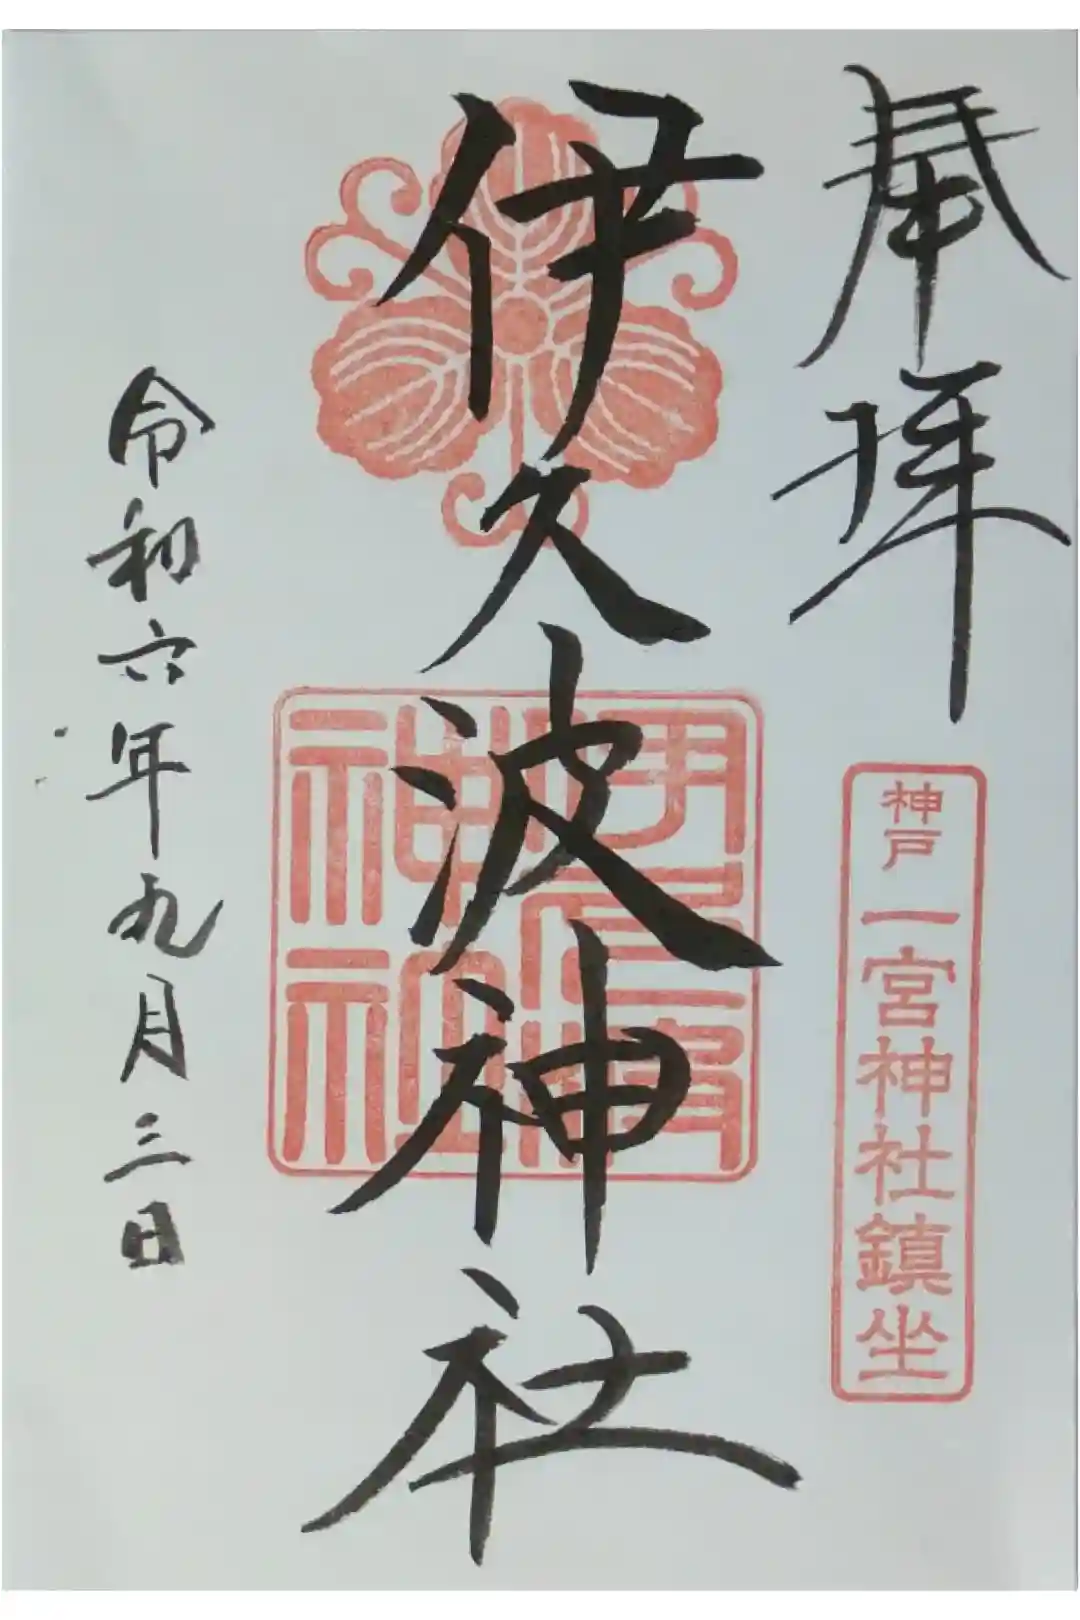 奉拝
神戸一宮神社鎮坐
伊久波神社
令和六年九月三日